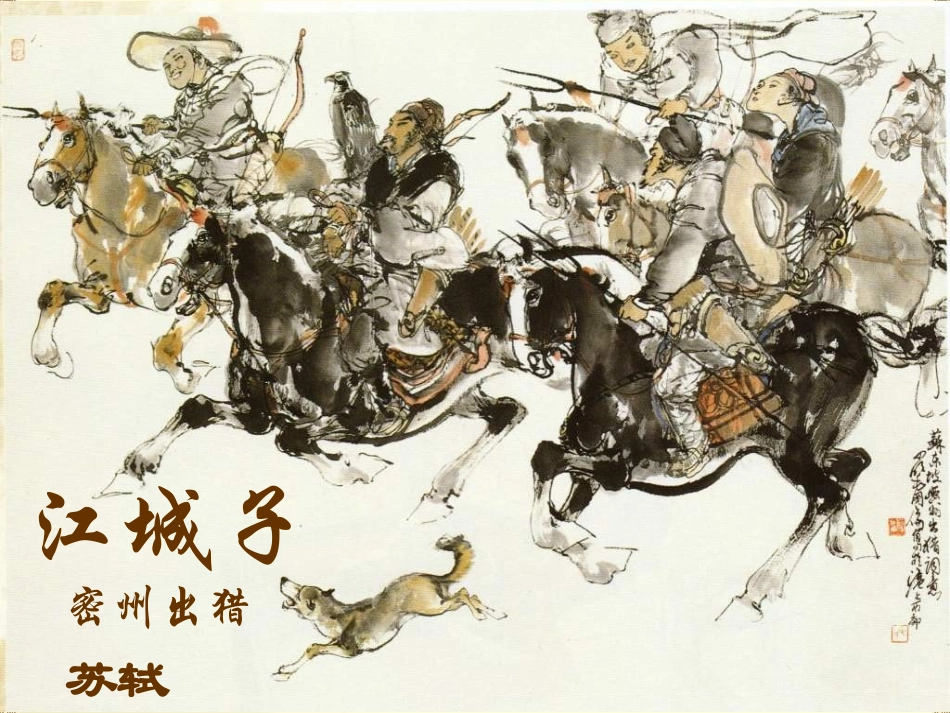 江城子
密州出猎
苏轼
蘇東坡密州出獵詞意